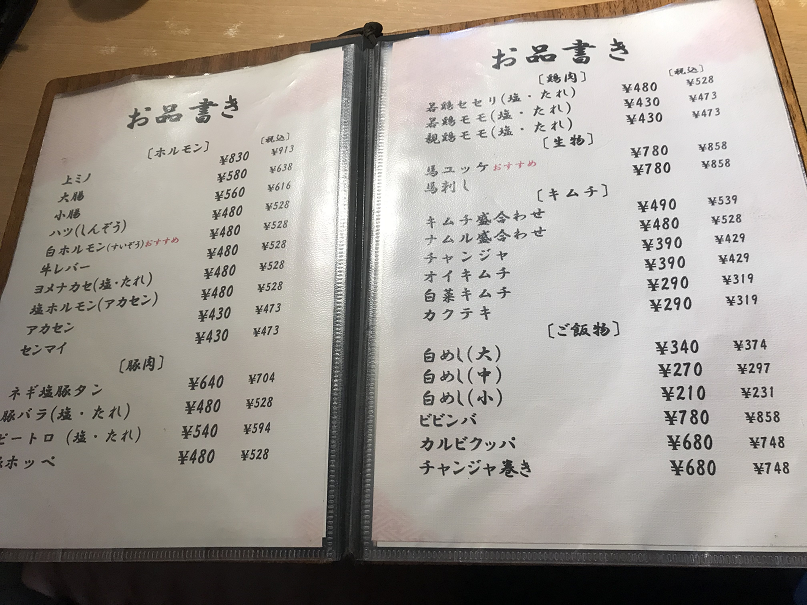 お品書き
[ホルモン] (税込)
上ミノ ¥830 ¥913
大腸 ¥580 ¥638
小腸 ¥560 ¥616
ハツ(しんぞう) ¥480 ¥528
白ホルモン(すいぞう)おすすめ ¥480 ¥528
牛レバー ¥480 ¥528
ヨメナカセ(塩・たれ) ¥480 ¥528
塩ホルモン(アカセン) ¥480 ¥528
アカセン ¥430 ¥473
センマイ ¥430 ¥473
[豚肉]
ネギ塩豚タン ¥640 ¥704
豚バラ(塩・たれ) ¥480 ¥528
ピートロ (塩・たれ) ¥540 ¥594
ホッペ ¥480 ¥528
お品書き
[鶏肉] (税込)
若鶏セセリ(塩・たれ) ¥480 ¥528
若鶏モモ(塩・たれ) ¥430 ¥473
親鶏モモ(塩・たれ) ¥430 ¥473
[生物]
馬ユッケおすすめ ¥780 ¥858
馬刺し ¥780 ¥858
[キムチ]
キムチ盛合わせ ¥490 ¥539
ナムル盛合わせ ¥480 ¥528
チャンジャ ¥390 ¥429
オイキムチ ¥390 ¥429
白菜キムチ ¥290 ¥319
カクテキ ¥290 ¥319
[ご飯物]
白めし(大) ¥340 ¥374
白めし(中) ¥270 ¥297
白めし(小) ¥210 ¥231
ビビンバ ¥780 ¥858
カルビクッパ ¥680 ¥748
チャンジャ巻き ¥680 ¥748